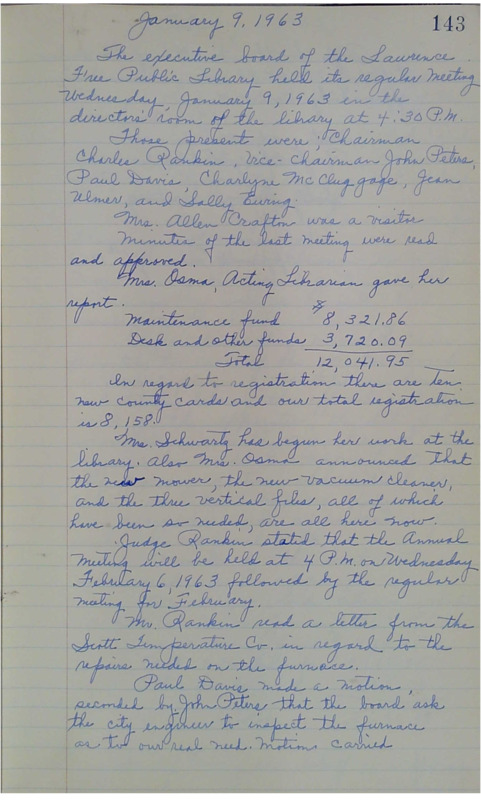 January 9, 1963
143
The executive board of the Lawrence
Free Public Library held its regular meeting
Wednesday, January 9, 1963 in the
directors room of the library at 4:30 P.M.
Those present were; Chairman
Charles Rankin, Vice-chairman John Peters,
Paul Davis, Charlyne McCluggage, Jean
Ulmer, and Sally Ewing.
Mrs. Allen Crafton was a visitor
Minutes of the last meeting were read
and approved.
Mrs. Osma, Acting Librarian gave her
report.
Maintenance fund $8,321.86
Desk and other funds 3,720.09
Total 12,041.95
In regard to registration there are ten
new county cards and our total registration
is 8,158.
Mrs. Schwartz has begun her work at the
library. Also Mrs. Osma announced that
the new mower, the new vacuum cleaner,
and the three vertical files, all of which
have been so needed, are all here now.
Judge Rankin stated that the Annual
Meeting will be held at 4 P.M. on Wednesday
February 6, 1963 followed by the regular
meeting for February.
Mr. Rankin read a letter from the
Scott Temperature Co. in regard to the
repairs needed on the furnace.
Paul Davis made a motion,
seconded by John Peters that the board ask
the city engineer to inspect the furnace
as to our real need. Motions carried